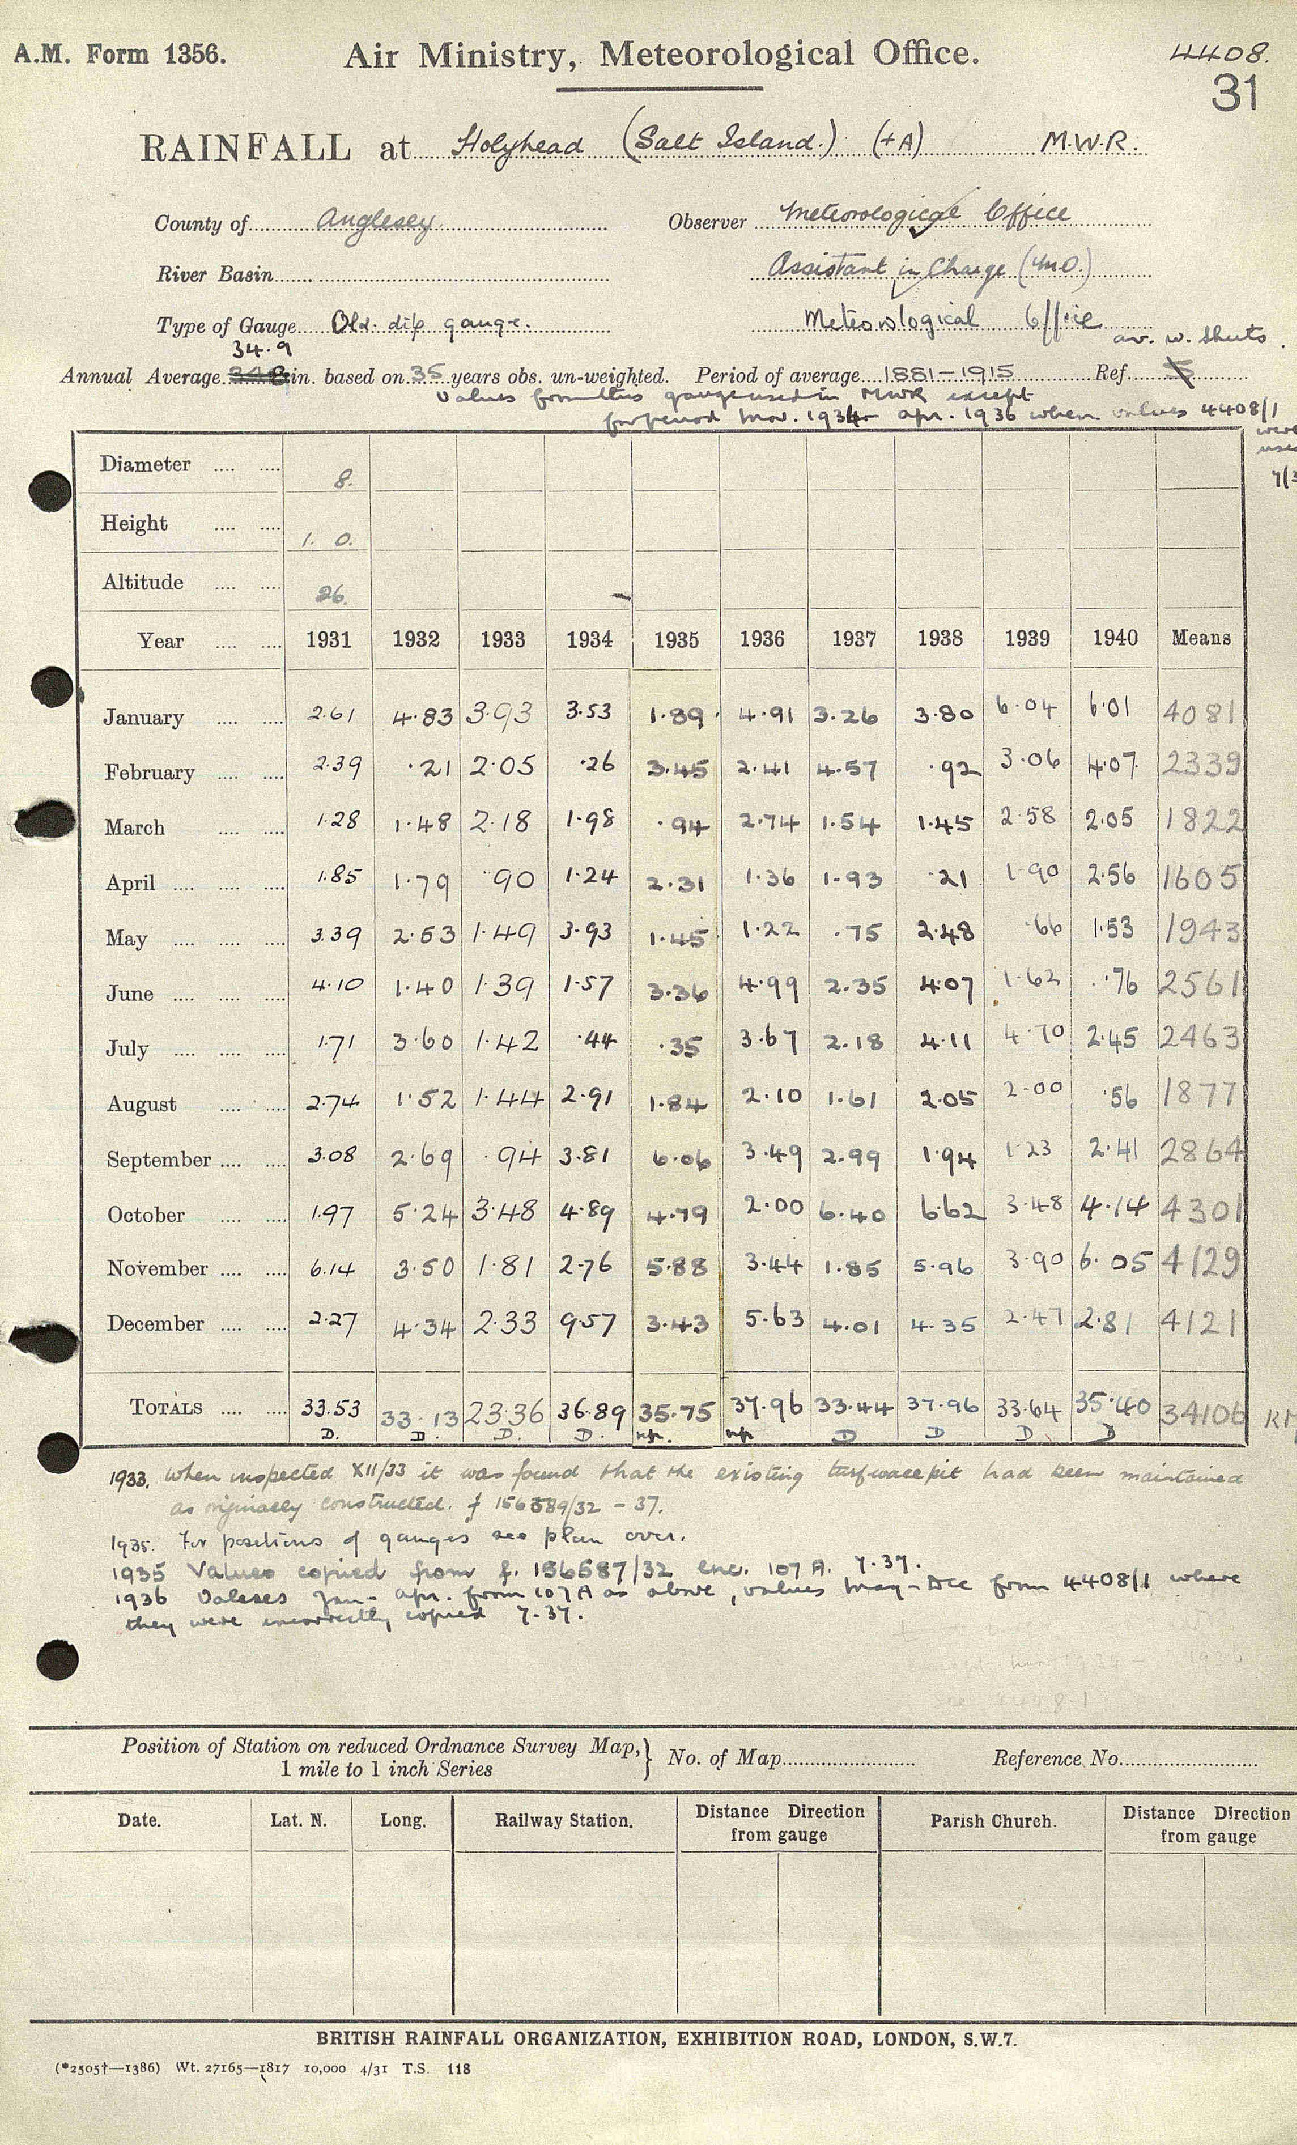 A.M. Form 1356.
Air Ministry, Meteorological Office.
4408.
31
RAINFALL at Holyhead (Salt Island.) (+A) M.W.R.
County of Anglesey. Observer Meteorological Office
River Basin Assistant in Charge (4mo.)
Type of Gauge Old. dip gauge. Meteorological Office
av. w. Sheets.
34.9
Annual Average in. based on 35 years obs. un-weighted. Period of average 1881-1915 Ref. 5
Values from this gauge used in MWR except
for period Nov. 1934 - apr. 1936 when values 4408/1
were
used
Diameter 8.
Height 1. 0.
Altitude 26.
Year 1931 1932 1933 1934 1935 1936 1937 1938 1939 1940 Means
January 2.61 4.83 3.93 3.53 1.89 4.91 3.26 3.80 6.04 6.01 4081
February 2.39 .21 2.05 .26 3.45 2.41 4.57 .92 3.06 4.07 2339
March 1.28 1.48 2.18 1.98 .94 2.74 1.54 1.45 2.58 2.05 1822
April 1.85 1.79 .90 1.24 2.31 1.36 1.93 .21 1.90 2.56 1605
May 3.39 2.53 1.49 3.93 1.45 1.22 .75 2.48 .66 1.53 1943
June 4.10 1.40 1.39 1.57 3.36 4.99 2.35 4.07 1.62 .76 2561
July 1.71 3.60 1.42 .44 .35 3.67 2.18 4.11 4.70 2.45 2463
August 2.74 1.52 1.44 2.91 1.84 2.10 1.61 2.05 2.00 .56 1877
September 3.08 2.69 .94 3.81 6.06 3.49 2.99 1.94 1.23 2.41 2864
October 1.97 5.24 3.48 4.89 4.79 2.00 6.40 6.62 3.48 4.14 4301
November 6.14 3.50 1.81 2.76 5.88 3.44 1.85 5.96 3.90 6.05 4129
December 2.27 4.34 2.33 9.57 3.43 5.63 4.01 4.35 2.47 2.81 4121
TOTALS 33.53 33.13 23.36 36.89 35.75 37.96 33.44 37.96 33.64 35.40 34106
D. D. D. D. np. np D D D D
1933. When inspected XII/33 it was found that the existing turfwall & pit had been maintained
as originally constructed. f 156589/32 - 37.
1935. For positions of gauges see plan over.
1935 Values copied from f. 156587/32 enc. 107A. 7.37.
1936 Values Jan - apr. from 107A as above, values May - Dec from 4408/1 where
they were incorrectly copied 7.37.
Position of Station on reduced Ordnance Survey Map,} No. of Map Reference No.
1 mile to 1 inch Series
Date. Lat. N. Long. Railway Station. Distance Direction from gauge Parish Church. Distance Direction from gauge
BRITISH RAINFALL ORGANIZATION, EXHIBITION ROAD, LONDON, S.W.7.
(*2505†—1386) Wt. 27165—1817 10,000 4/31 T.S. 118